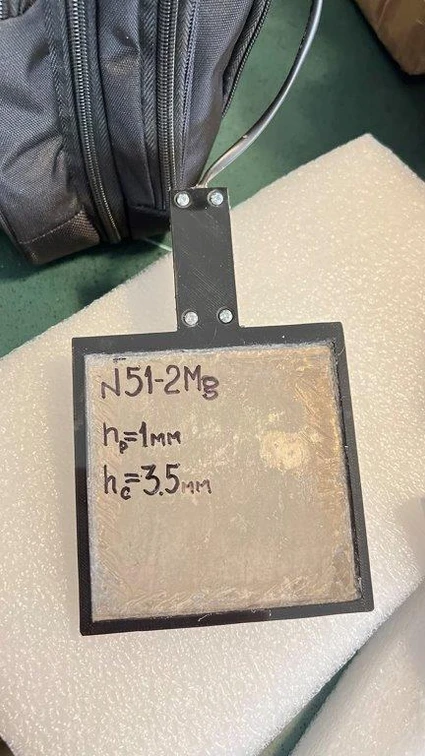 N51-2Mg
hp=1мм
hc=3.5мм